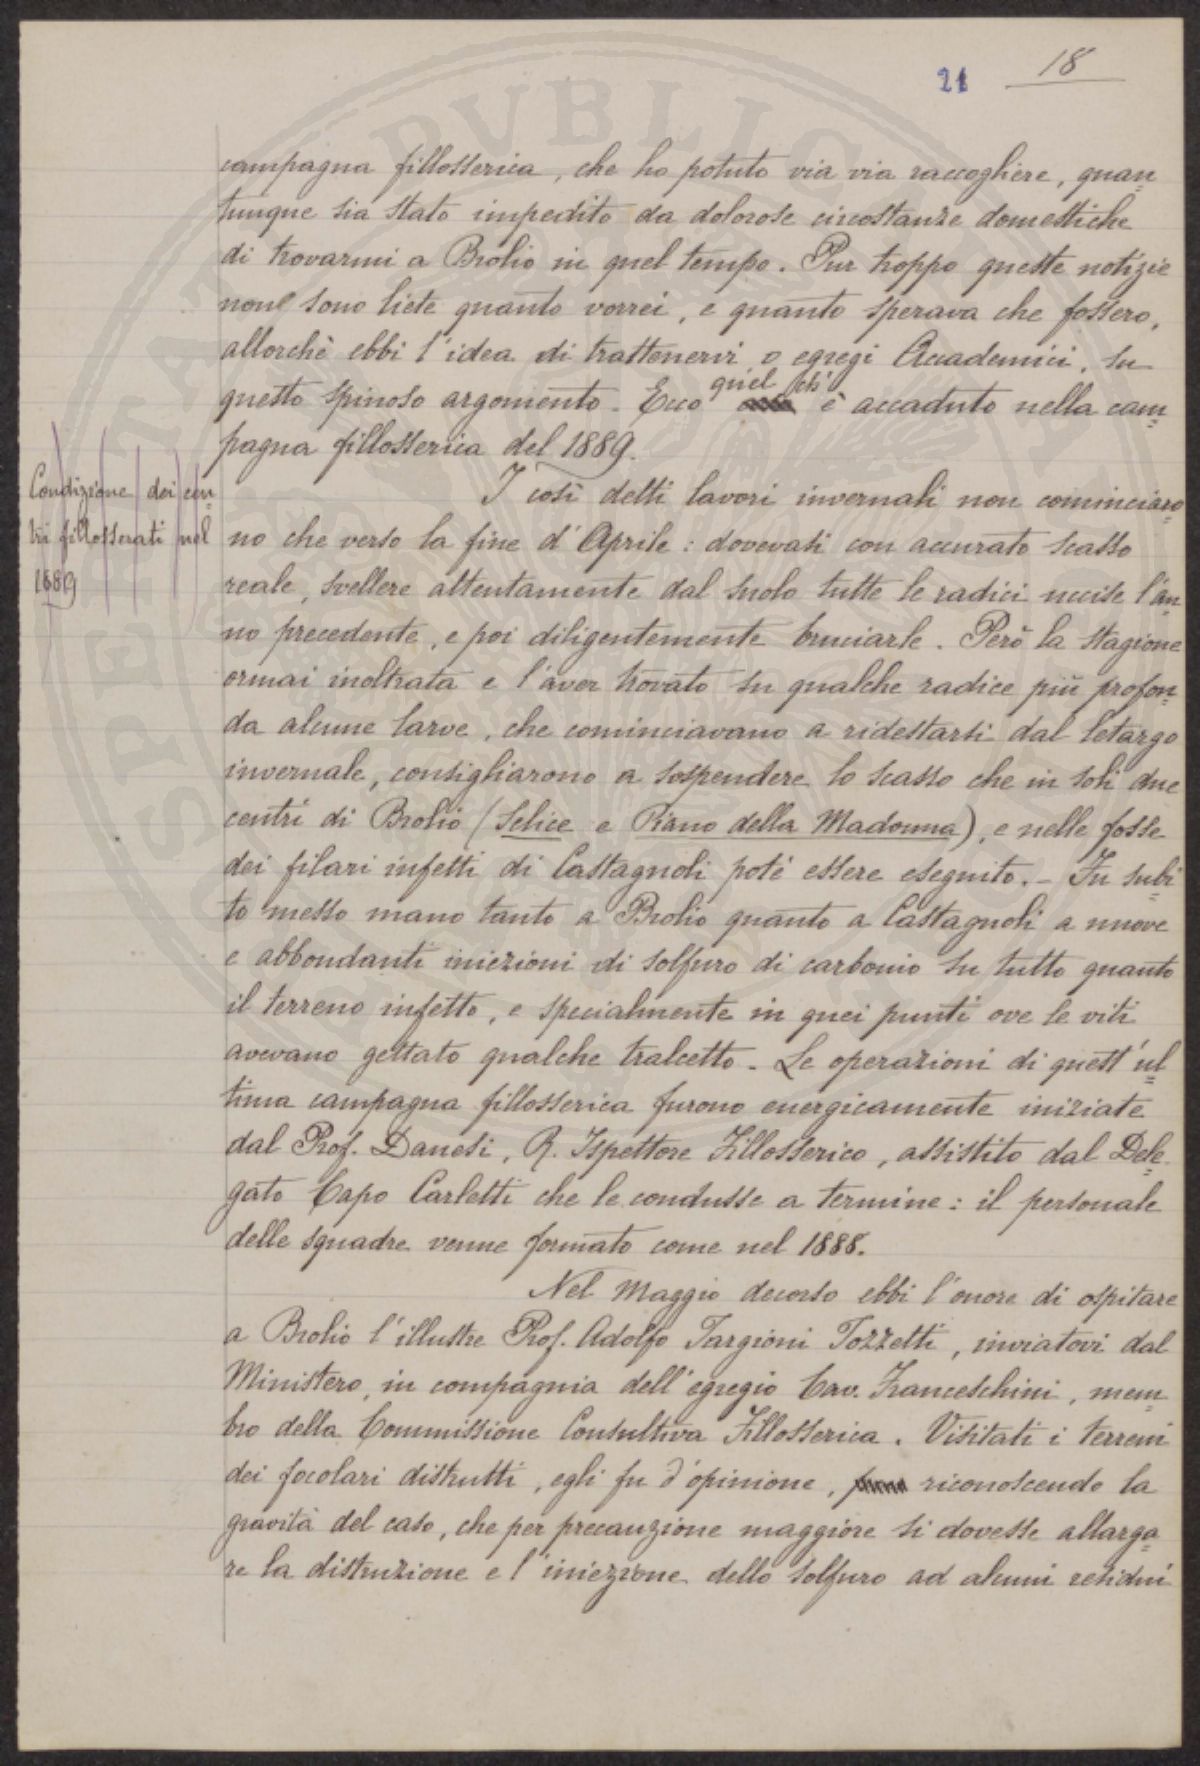 21 18
campagna fillosserica, che ho potuto via via raccogliere, quan=
tunque sia stato impedito da dolorose circostanze domestiche
di trovarmi a Brolio in quel tempo. Pur troppo queste notizie
non sono liete quanto vorrei, e quanto sperava che fossero,
allorchè ebbi l'idea di trattenervi o egregi Accademici, su
quel ch'
questo spinoso argomento. Ecco è accaduto nella cam=
pagna fillosserica del 1889.
Condizione dei cen
tri fillosserati nel
1889
I così detti lavori invernali non cominciaro
no che verso la fine d'Aprile: dovevasi con accurato scasso
reale, svellere attentamente dal suolo tutte le radici uccise l'an=
no precedente, e poi diligentemente bruciarle. Però la stagione
ormai inoltrata e l'aver trovato su qualche radice più profon=
da alcune larve, che cominciavano a ridestarsi dal letargo
invernale, consigliarono a sospendere lo scasso che in soli due
centri di Brolio (Selice e Piano della Madonna), e nelle fosse
dei filari infetti di Castagnoli poté essere eseguito. - Fu subi=
to messo mano tanto a Brolio quanto a Castagnoli a nuove
e abbondanti iniezioni di solfuro di carbonio su tutto quanto
il terreno infetto, e specialmente in quei punti ove le viti
avevano gettato qualche tralcetto. Le operazioni di quest'ul=
tima campagna fillosserica furono energicamente iniziate
dal Prof. Danesi, R. Ispettore Fillosserico, assistito dal Dele=
gato Capo Carletti che le condusse a termine: il personale
delle squadre venne formato come nel 1888.
Nel Maggio decorso ebbi l'onore di ospitare
a Brolio l'illustre Prof. Adolfo Targioni Tozzetti, inviatovi dal
Ministero, in compagnia dell'egregio Cav. Franceschini, mem=
bro della Commissione Consultiva Fillosserica. Visitati i terreni
dei focolari distrutti, egli fu d'opinione, riconoscendo la
gravità del caso, che per precauzione maggiore si dovesse allarga=
re la distruzione e l'iniezione dello solfuro ad alcuni residui